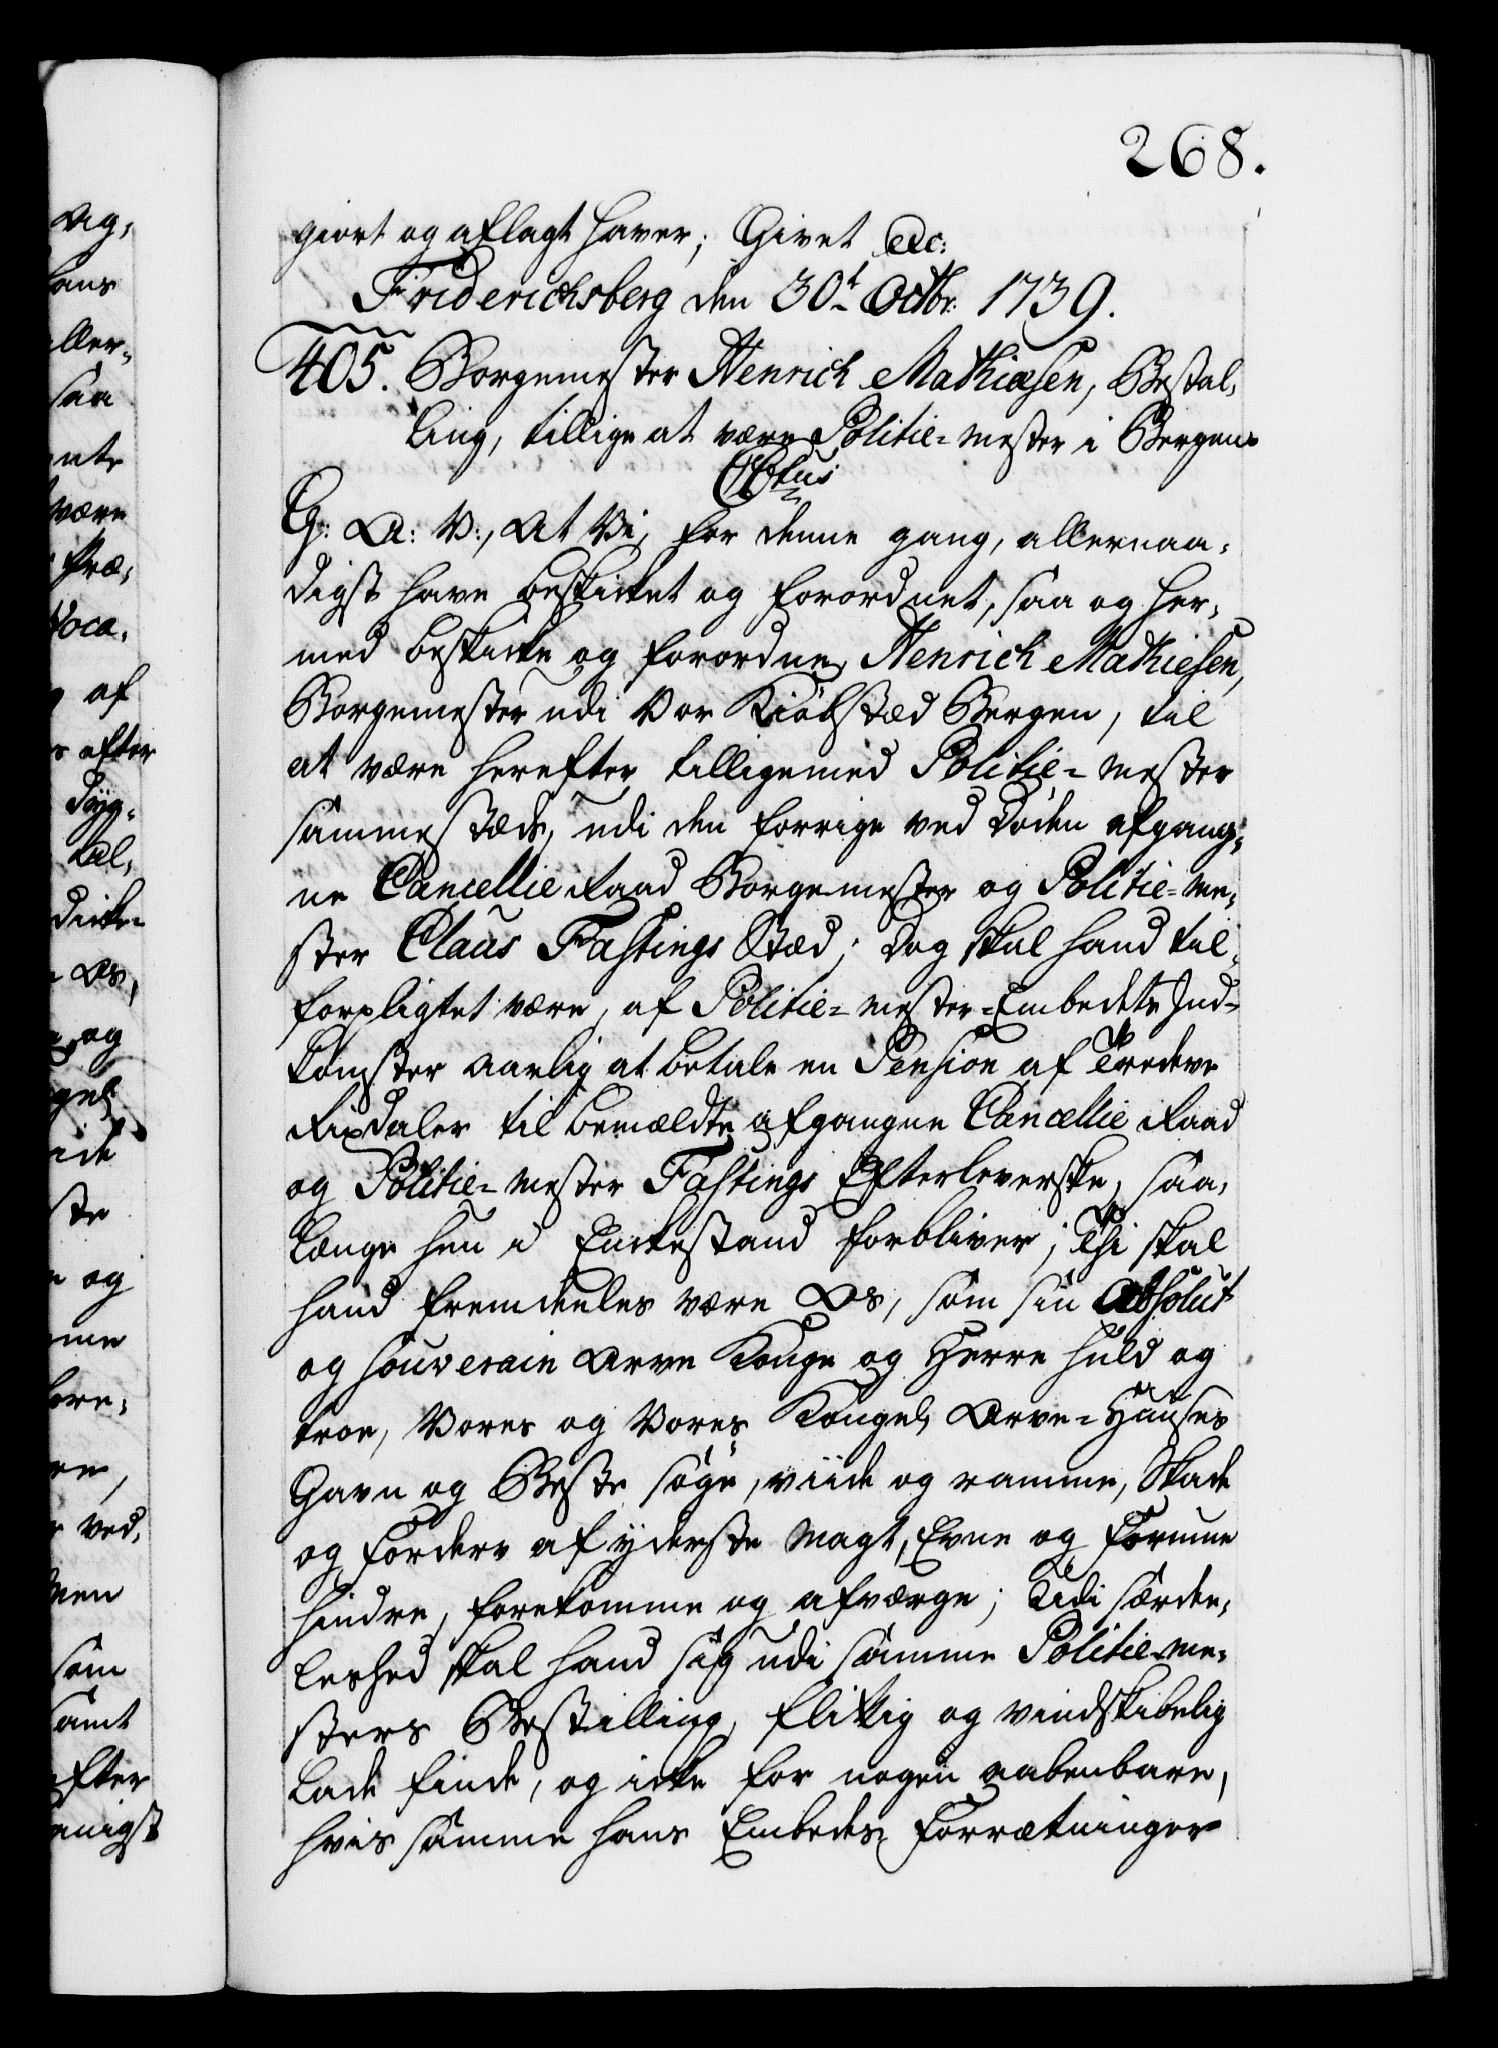 268.
giort og aflagt haver; Givet &c:
Friderichsberg den 30t Octbr: 1739.
405. Borgemester Henrich Mathiesen, Bestal,
ling, tillige at være Politie=mester i Bergen.
C6tus
G: A: V:, At Vi, for denne gang, allernaa,
digst have beskicket og forordnet, saa og her,
med beskicke og forordne, Henrich Mathiesen,
Borgemester udi Vor Kiöbstæd Bergen, til
at være herefter tilligemed Politie=mester
sammestæds, udi den forrige ved Döden afgang,
ne Cancellie Raad Borgemester og Politie=me,
ster Claus Fastings Stæd; Dog skal hand til,
forpligtet være, af Politie=mester=Embedets Ind=
komster aarlig at betale en Pension af Tredeve
Rixdaler til bemældte afgangne Cancellie Raad
og Politie=mester Fastings Efterleverske, saa,
længe hun i Enckestand forbliver; Thi skal
hand fremdeeles være Os, som sin Absolut
og souverain Arve Konge og Herre huld og
troe, Vores og Vores Kongel. Arve=Huuses
Gavn og Beste söge, viide og ramme, Skade
og Forderv af yderste Magt, Evne og Formue
hindre, forekomme og afværge; Udi særde,
leshed skal hand sig udi samme Politie-me,
sters Bestilling, flittig og vindskibelig
lade finde, og icke for nogen aabenbare,
hvis samme hans Embedes Forrætninger
Ag,
hans
aller=
saa
ents
være
Præ,
Voca,
og af
efter
Dyg=
tal,
dicke=
Os,
og
gel.
ide
ste
og
me
fore,
ren,
ved,
men
som
samt
efter
nigst